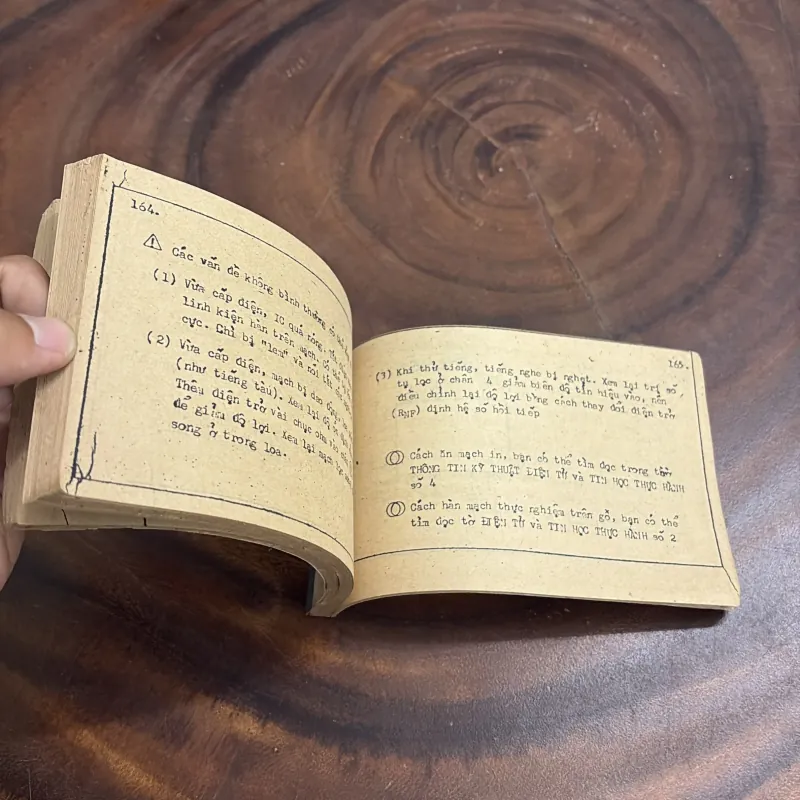 164.
⚠ Các vấn đề không bình thường có thể
(1) Vừa cấp điện, IC quá nóng.
linh kiện hàn trên mạch. Có
cực. Ghi bị "lem" và nối tắt
(2) Vừa cấp điện, mạch bị dao động,
(như tiếng tàu). Xem lại độ
Thêm điện trở vài chục ohm
để giảm độ lợi. Xem lại mạch
song ở trong loa.
165.
(3) Khi thử tiếng, tiếng nghe bị nghẹt. Xem lại trị số
tụ lọc ở chân 4 giảm biên độ tín hiệu vào, nên
điều chỉnh lại độ lợi bằng cách thay đổi điện trở
định hệ số hồi tiếp
Cách ăn mạch in, bạn có thể tìm đọc trong tờ
THÔNG TIN KỸ THUẬT ĐIỆN TỬ và TIN HỌC THỰC HÀNH
số 4
Cách hàn mạch thực nghiệm trên gỗ, bạn có thể
tìm đọc tờ ĐIỆN TỬ và TIN HỌC THỰC HÀNH số 2